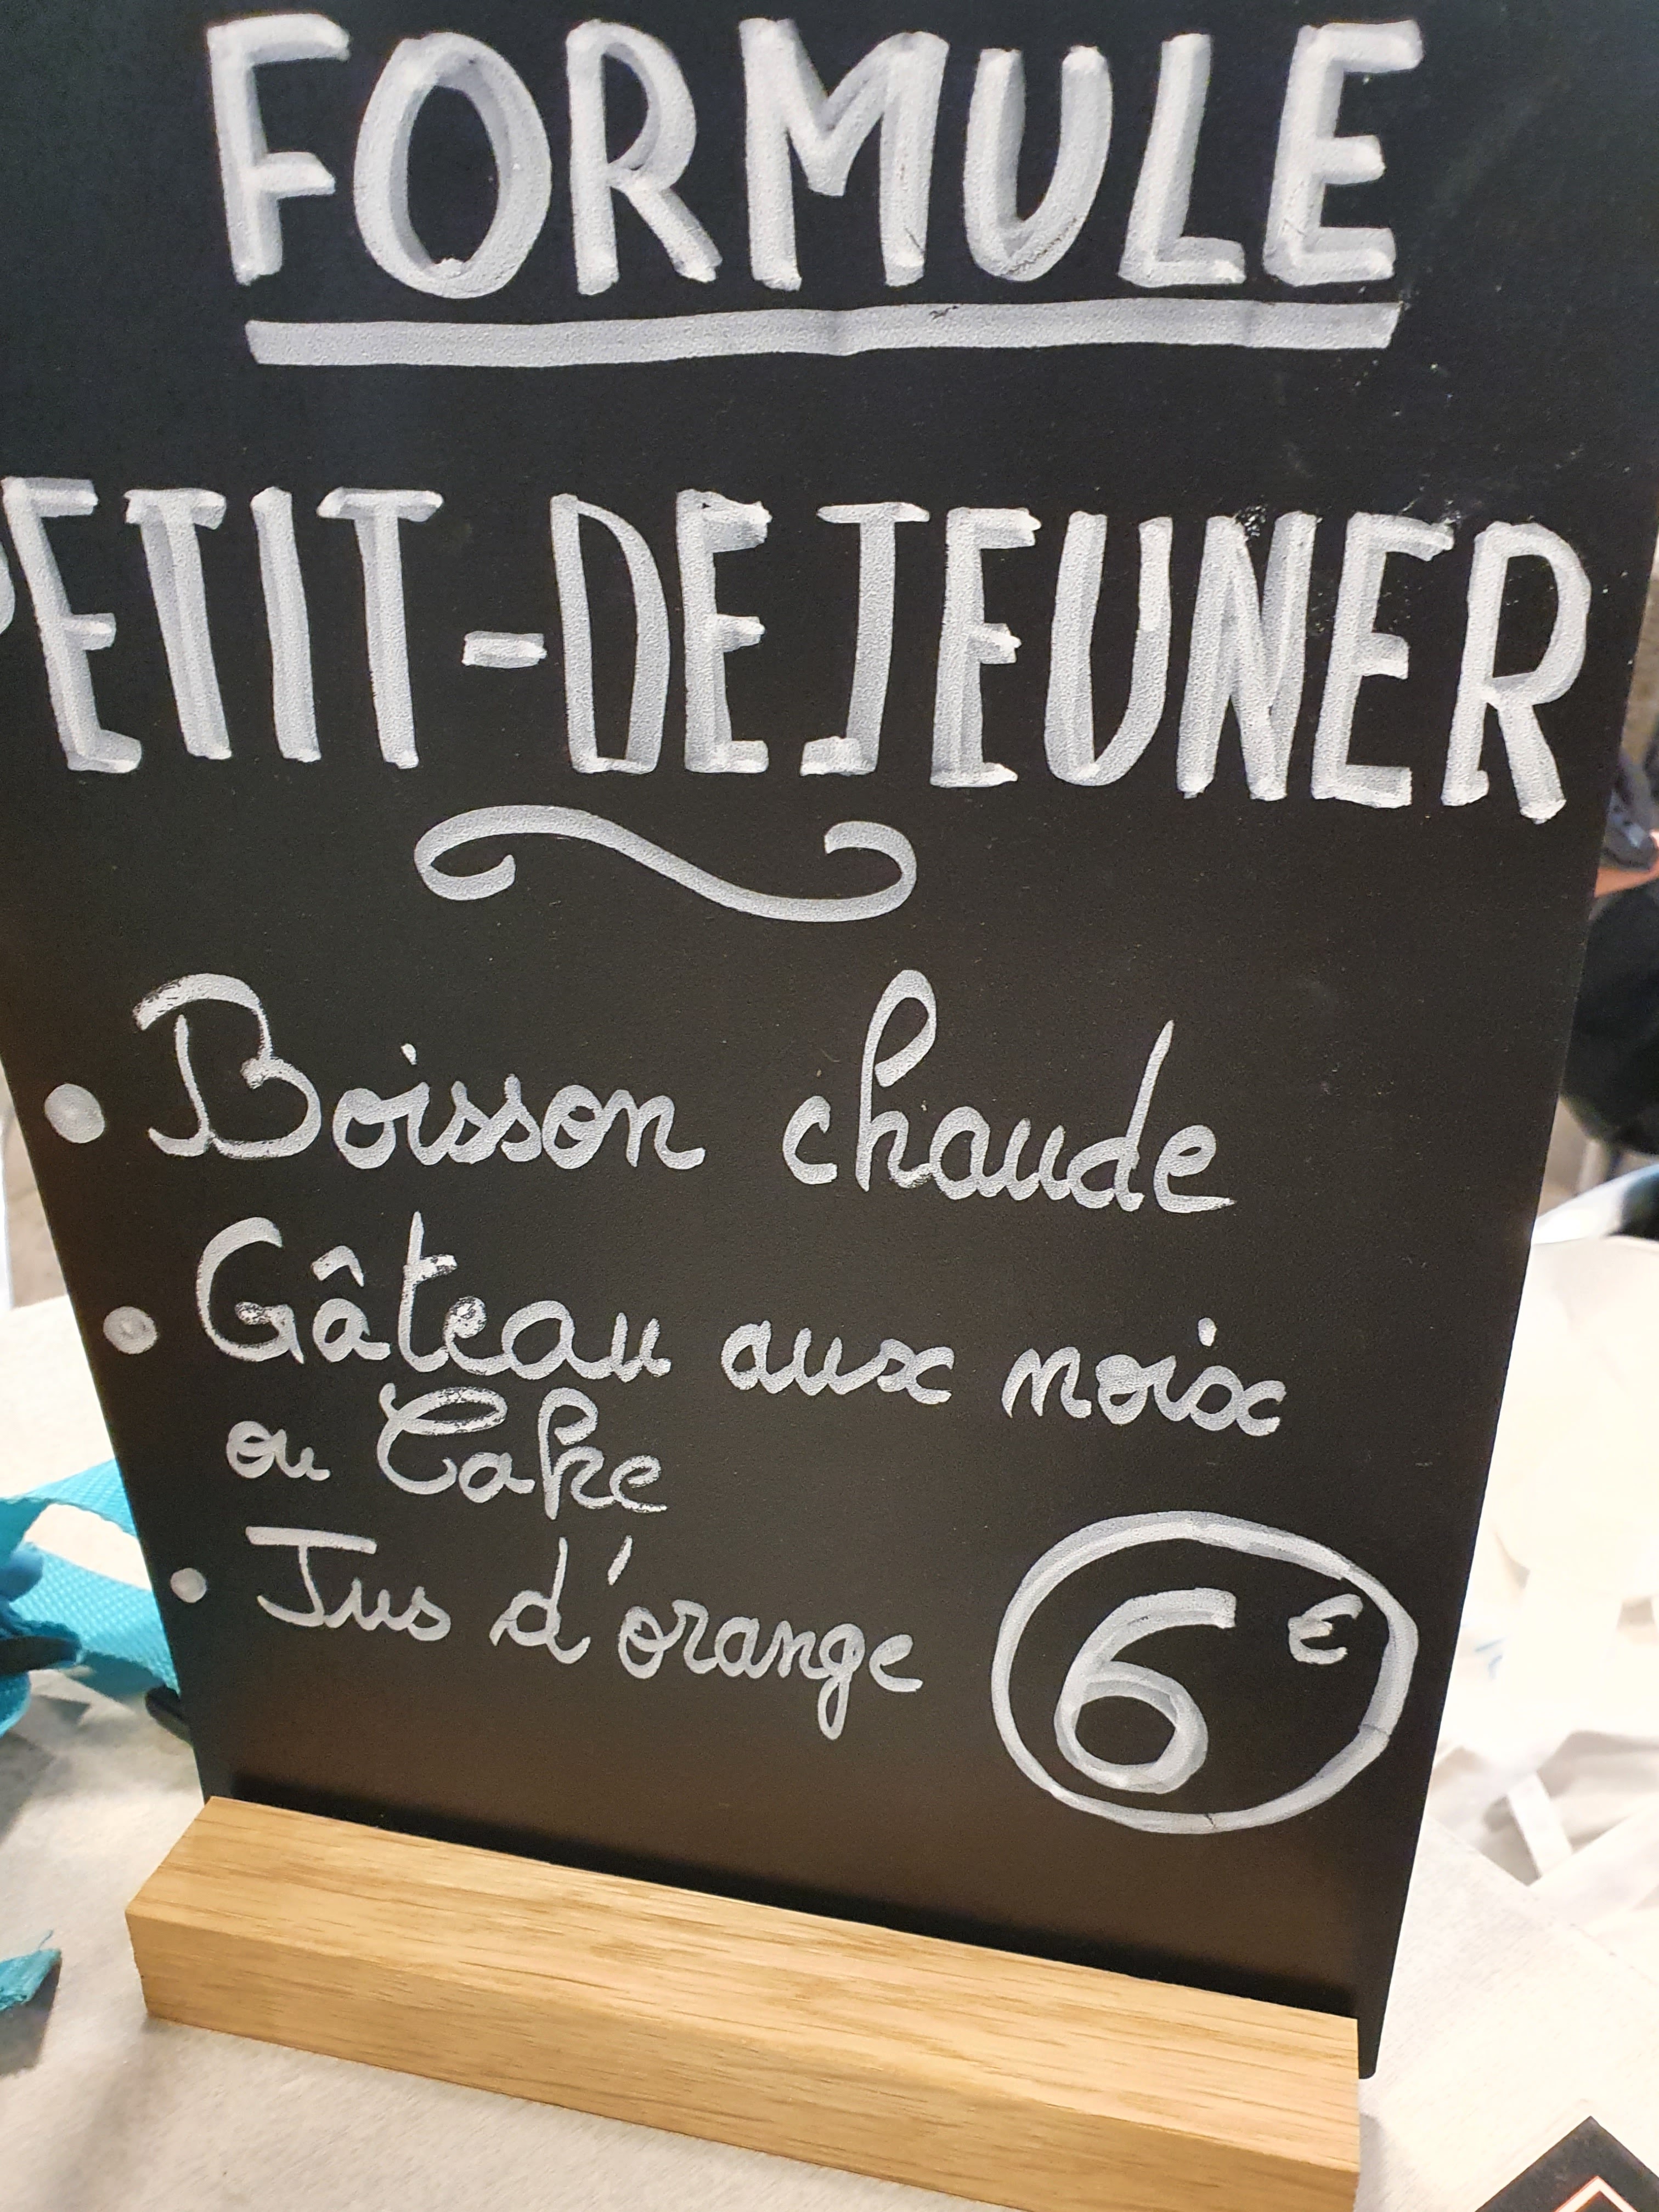 FORMULE
PETIT-DEJEUNER
• Boisson chaude
• Gâteau aux noix
ou Cake
• Jus d'orange
6€